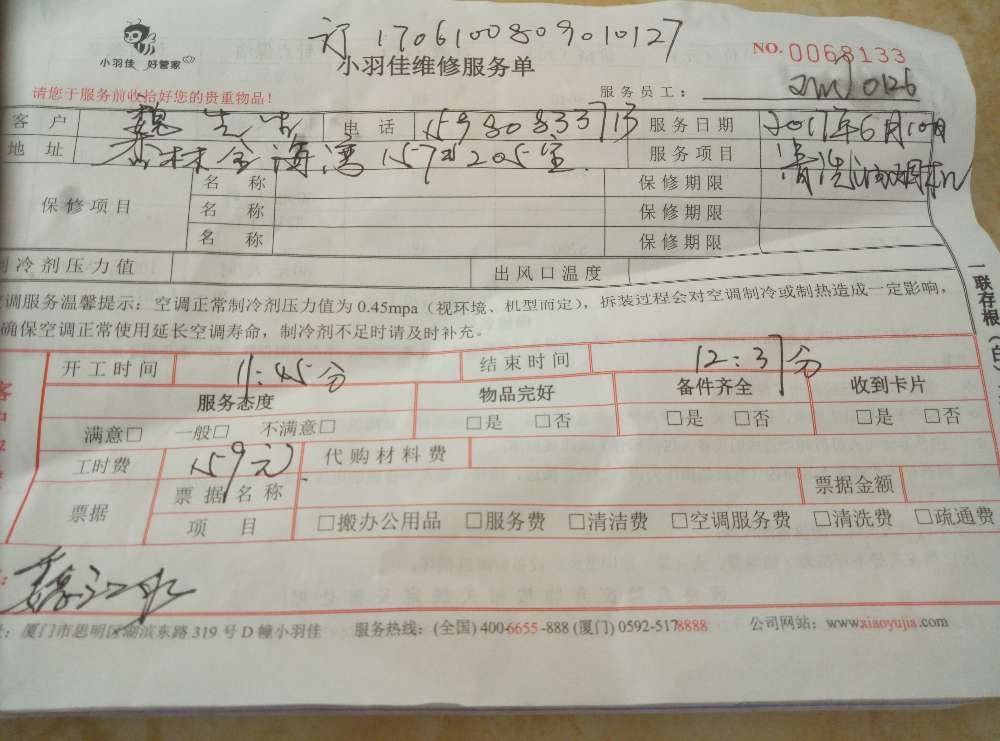 订 1706100809010127
小羽佳 好管家
小羽佳维修服务单
NO. 0068133
请您于服务前收拾好您的贵重物品!
服务员工:
客 户 魏先生 电 话 15980833713 服务日期 2017年6月10日
地 址 杏林金海湾157#205室 服务项目 清洗油烟机
保修项目 名 称 保修期限
名 称 保修期限
名 称 保修期限
制冷剂压力值 出风口温度
调服务温馨提示: 空调正常制冷剂压力值为 0.45mpa (视环境、机型而定), 拆装过程会对空调制冷或制热造成一定影响,
确保空调正常使用延长空调寿命, 制冷剂不足时请及时补充。
一联存根(白)
开工时间 11:45分 结束时间 12:37分
服务态度 物品完好 备件齐全 收到卡片
满意□ 一般□ 不满意□ □是 □否 □是 □否 □是 □否
工时费 159元 代购材料费
票据 票据名称 票据金额
项 目 □搬办公用品 □服务费 □清洁费 □空调服务费 □清洗费 □疏通费
址: 厦门市思明区湖滨东路 319 号 D 幢小羽佳 服务热线: (全国) 400-6655-888 (厦门) 0592-5178888 公司网站: www.xiaoyujia.com